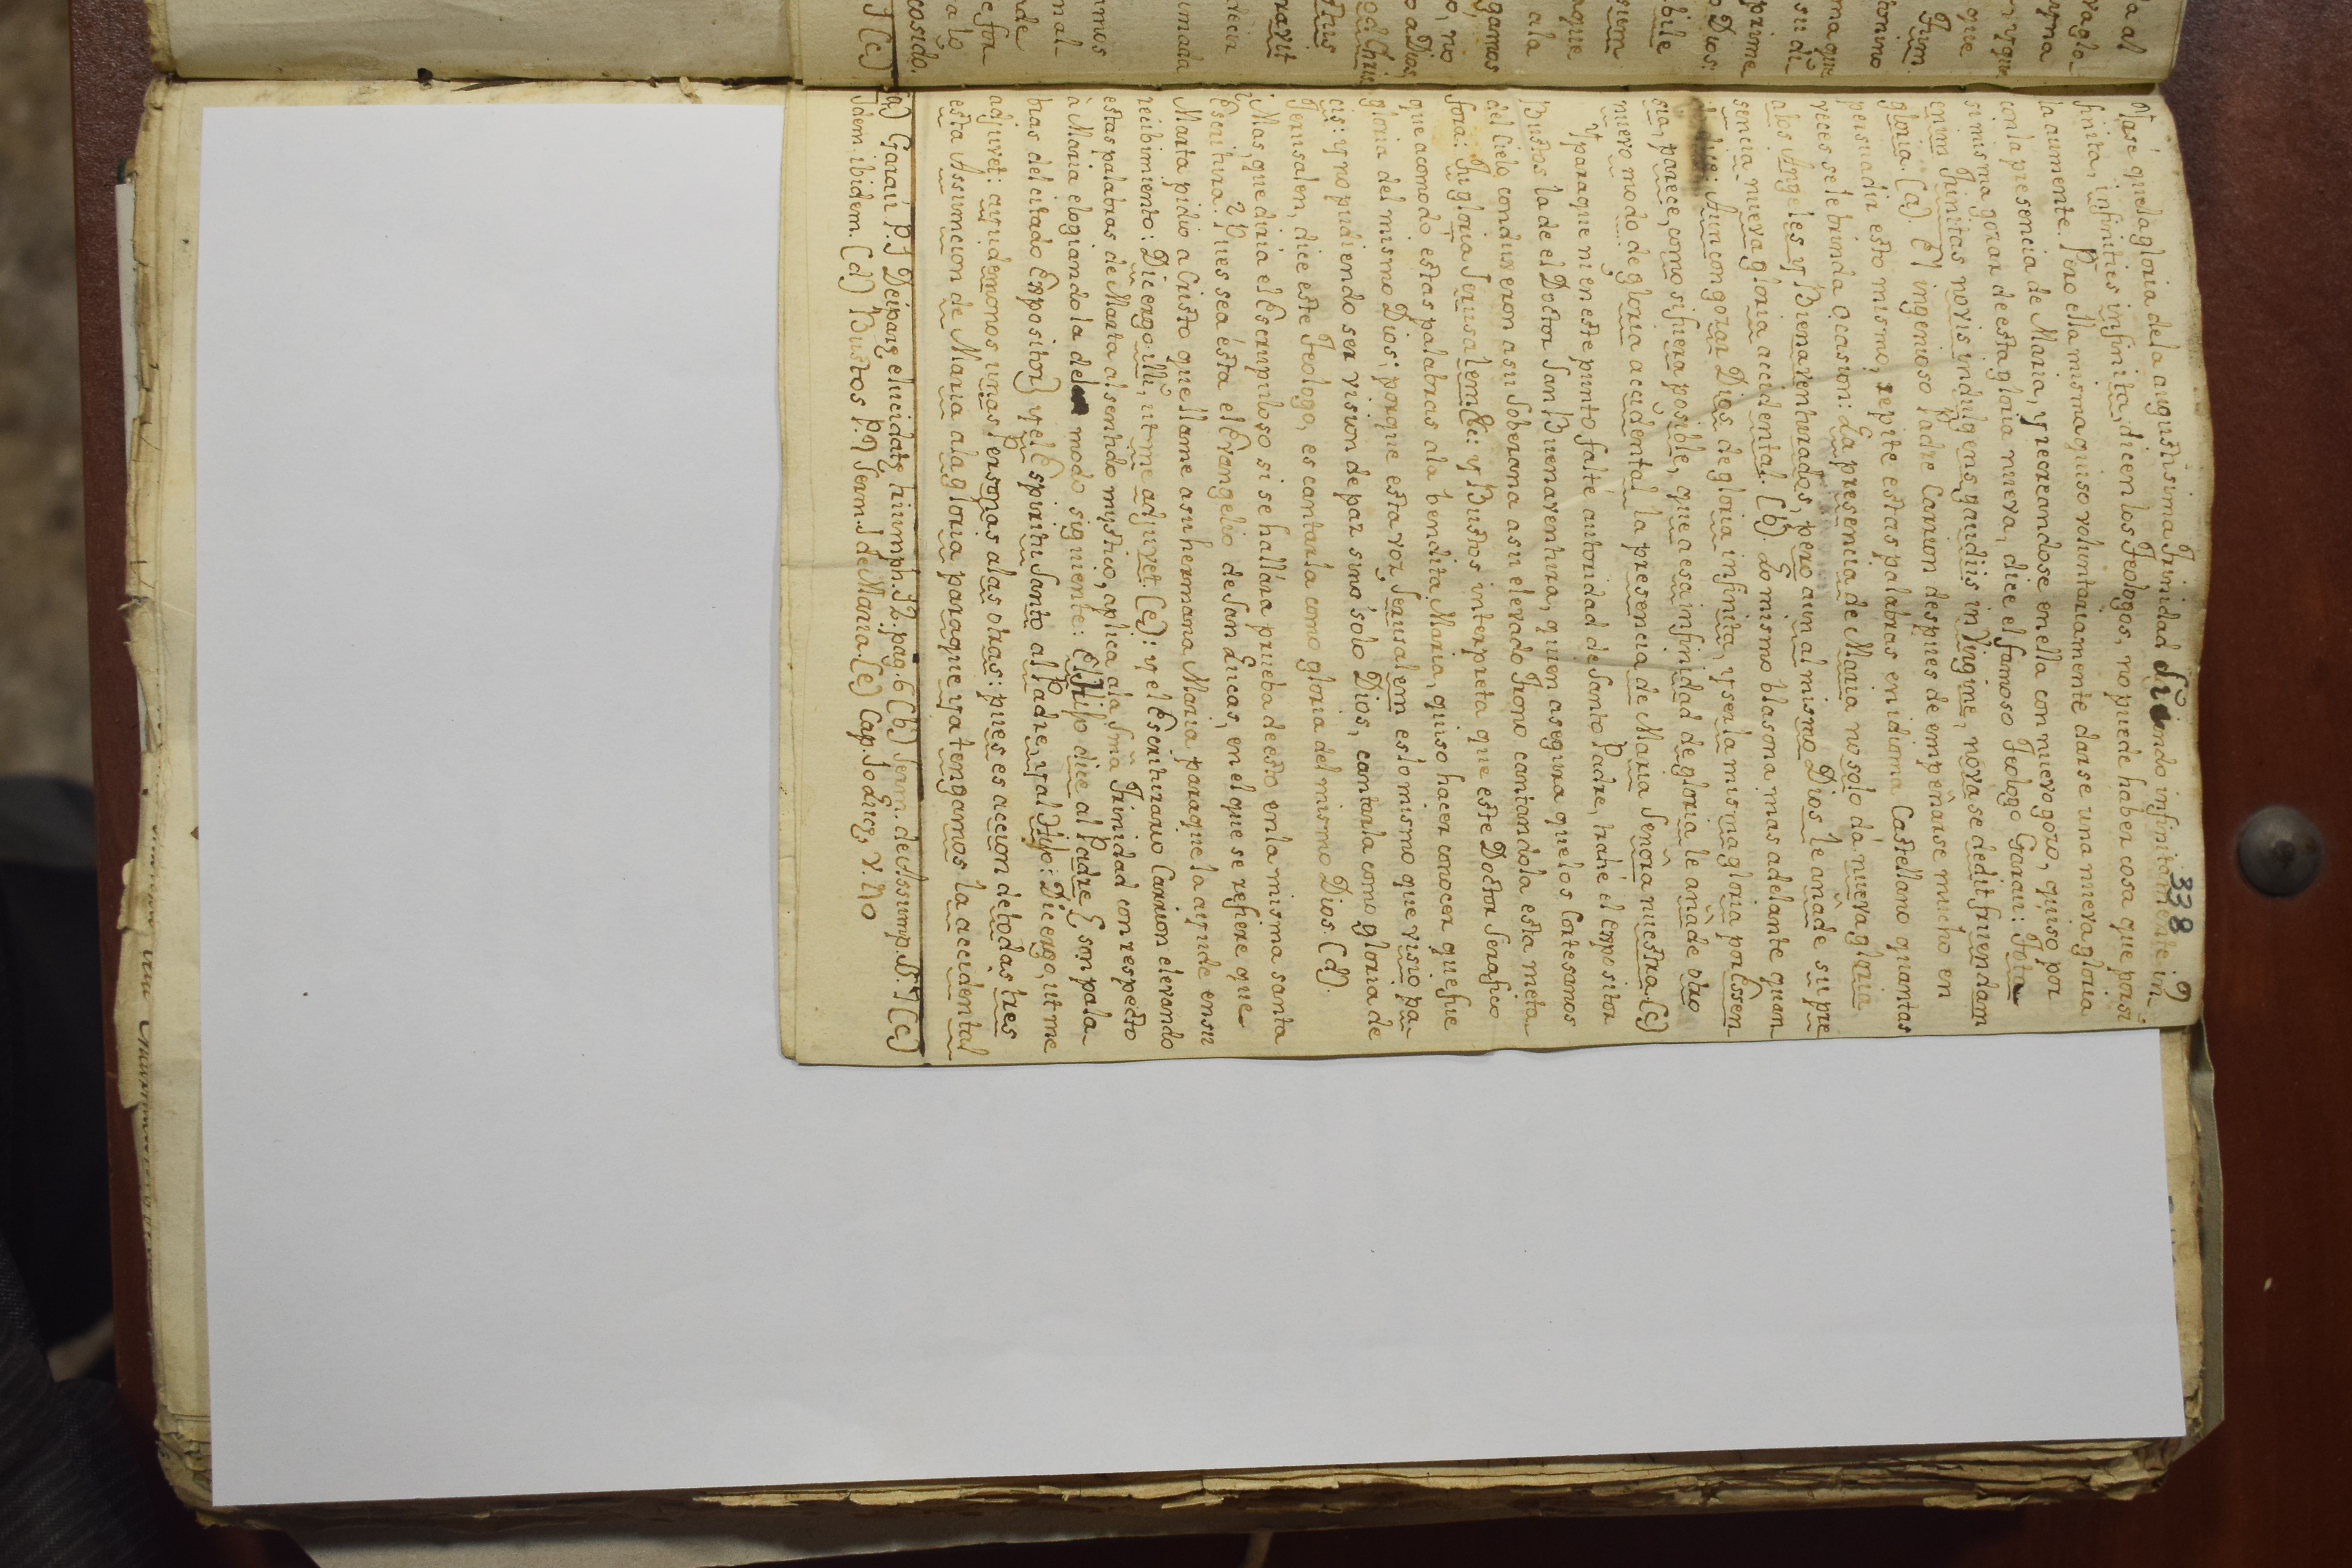 338 9
Ya sé que la gloria de la augustisima Trinidad siendo infinitamente in
finita, infinities infinita, dicen los Teologos, no puede haber cosa que por si
la aumente. Pero ella misma quiso voluntariamente darse una nueva gloria
con la presencia de Maria, y recreandose en ella con nuevo gozo, quiso por
si misma gozar de esta gloria nueva, dice el famoso Teologo Garau: Tota
enim Trinitas novis indulgens gaudiis in Virgine, nova se dedit fruendam
gloria. (a). El ingenioso Padre Carrion despues de empeñarse mucho en
persuadir esto mismo, repite estas palabras en idioma Castellano quantas
vices se le brinda occasion: La presencia de Maria no solo dá nueva gloria
a los Angeles y Bienaventurados, pero aun al mismo Dios le añade su pre
sencia nueva gloria accidental. (b) Lo mismo blasona mas adelante quan
dice: Aun con gozar Dios de gloria infinita, y ser la misma gloria por Essen
cia, parece, como si fuera posible, que a esa infinidad de gloria le añade otro
nuevo modo de gloria accidental la presencia de Maria Señora nuestra. (c)
Y para que ni en este punto falte autoridad de Santo Padre, trahe el Expositor
Bustos la de el Doctor San Buenaventura, quien asegura que los Cortesanos
del Cielo conduxeron a su Soberana a su elevado Trono cantandola esta meta
fora: Tu gloria Jerusalem &c: y Bustos interpreta que este Doctor Serafico
que acomodo estas palabras a la bendita Maria, quiso hacer conocer que fue
gloria del mismo Dios; porque esta voz Jerusalem es lo mismo que visio pa
cis: y no pudiendo ser vision de paz sino solo Dios, cantarla como gloria de
Jerusalen, dice este Teologo, es cantarla como gloria del mismo Dios. (d).
Mas, que diria el Escrupuloso si se hallára prueba de esto en la misma santa
Escritura? Pues sea ésta el Evangelio de San Lucas, en el que se refiere que
Marta pidio a Cristo que llame a su hermana Maria para que la ayude en su
recibimiento: Dic ergo illi, ut me adjuvet. (e): y el Escriturario Carrion elevando
estas palabras de Marta al sentido mystico, aplica a la Sma Trinidad con respecto
à Maria elogiandola del modo siguiente: El Hijo dice al Padre (son pala
bras del citado Expositor) y el Espiritu Santo al Padre, y al Hijo: Dic ergo, ut me
adjuvet: ayudemonos unas Personas a las otras: pues es accion de todas tres
esta Assumcion de Maria a la gloria para que ya tengamos la accidental
(a) Garau P.1 Deiparæ elucidatæ triumph. 32. pag. 6 (b) Serm. de Assump. §.7 (c)
Idem ibidem. (d) Bustos P.9 Serm. 1 de Maria. (e) Cap. 10 Lucæ, v. 40